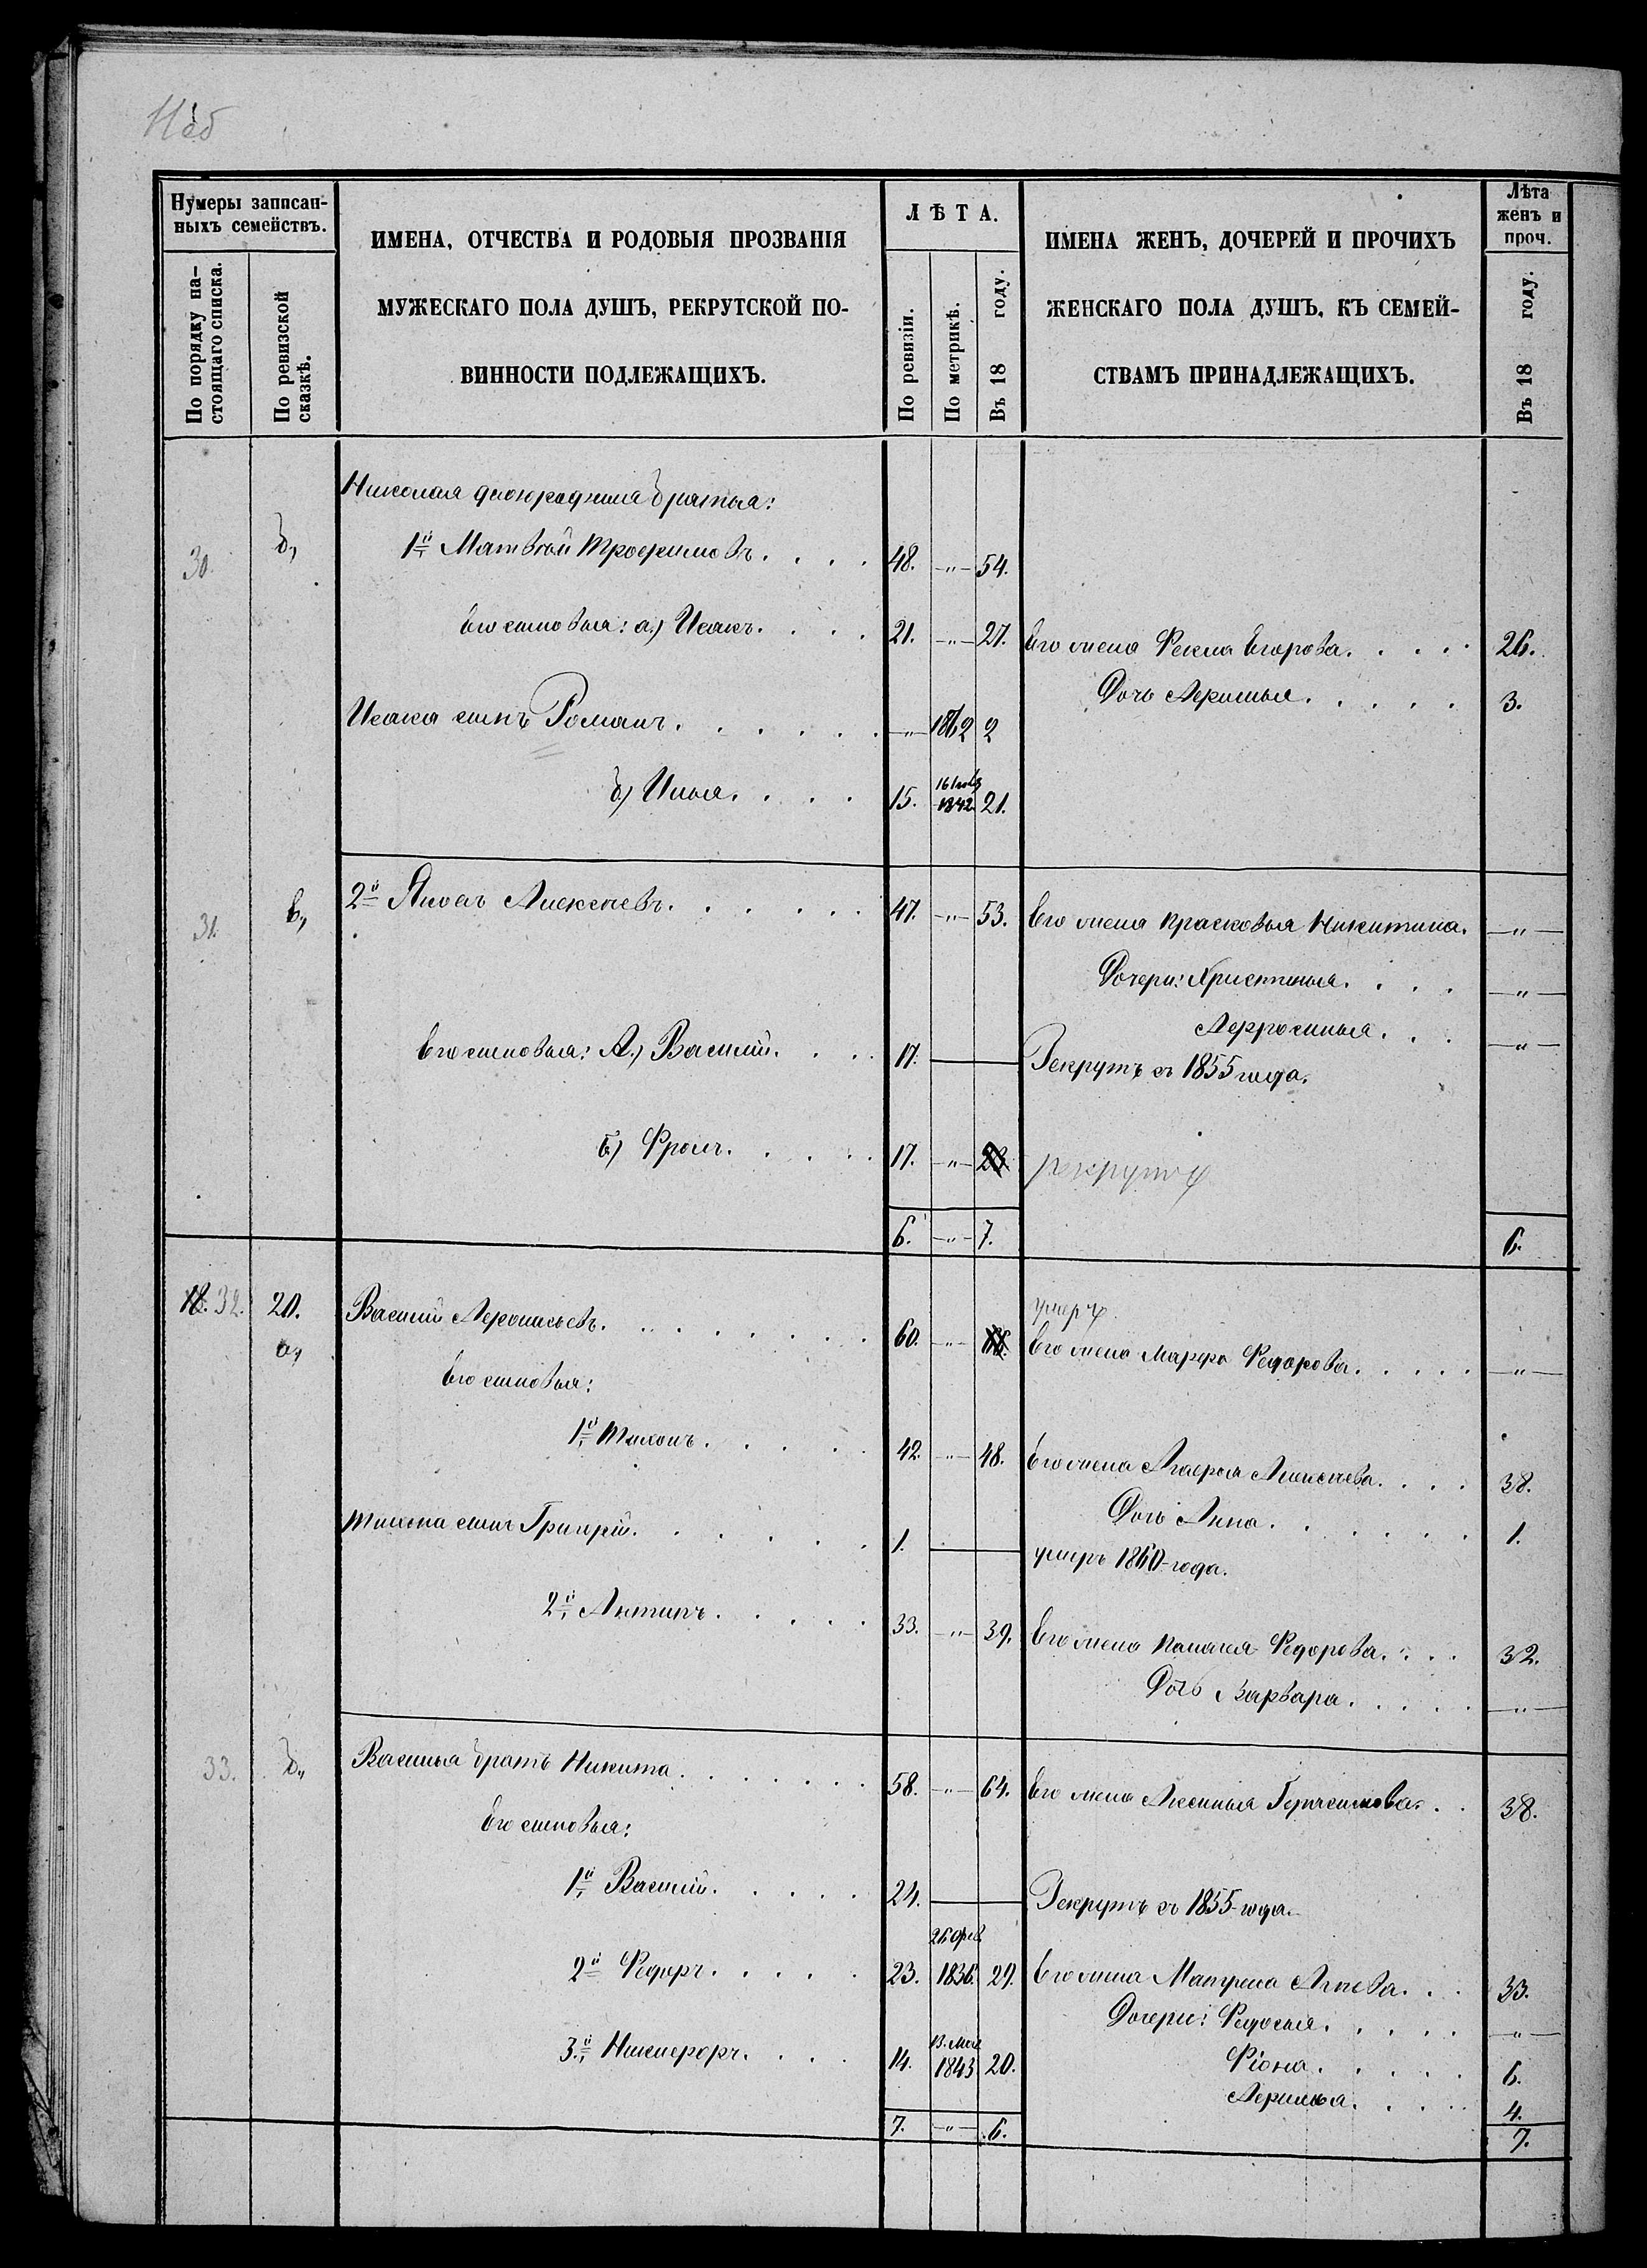 Нумеры записан-
ныхъ семействъ.
По порядку на-
стоящаго списка.
По ревизской
сказкѣ.
ИМЕНА, ОТЧЕСТВА И РОДОВЫЯ ПРОЗВАНІЯ
МУЖЕСКАГО ПОЛА ДУШЪ, РЕКРУТСКОЙ ПО-
ВИННОСТИ ПОДЛЕЖАЩИХЪ.
ЛѢТА.
По ревизіи.
По метрикѣ.
Въ 18 году.
ИМЕНА ЖЕНЪ, ДОЧЕРЕЙ И ПРОЧИХЪ
ЖЕНСКАГО ПОЛА ДУШЪ, КЪ СЕМЕЙ-
СТВАМЪ ПРИНАДЛЕЖАЩИХЪ.
Лѣта
женъ и
проч.
Въ 18 году.
Николая двоюродныя братья:
30. б, 1й Матвѣй Трофимовъ. 48. -"- 54.
Его сыновья: а,) Исакъ. 21. -"- 27. Его жена Фекла Егорова. 26.
Дочь Афимья. 3.
Исака сынъ Романъ. -"- 1862 2
б) Илья. 15. 16 1842. 21.
31. в, 2й Яковъ Алексѣевъ. 47. -"- 53. Его жена Прасковья Никитина. -"-
Дочери: Христинья. -"-
Афросинья. -"-
Его сыновья: А.) Василій. 17. Рекрутъ съ 1855 года.
Б) Фролъ. 17. -"- 23 рекрутъ
6. -"- 7. 6.
18. 32. 20. а, Василій Афонасьевъ. 60. -"- 66. умеръ
Его жена Марфа Федорова. -"-
Его сыновья:
1й Тихонъ. 42. -"- 48. Его жена Агафья Алексѣева. 38.
Дочь Анна. 1.
Тихона сынъ Григорій. 1. умеръ 1860 года.
2й Антипъ. 33. -"- 39. Его жена Пелагея Федорова. 32.
Дочь Варвара. -"-
33. б, Василья братъ Никита. 58. -"- 64. Его жена Аксинья Герасимова. 38.
Его сыновья:
1й Василій. 24. Рекрутъ съ 1855 года.
2й Федоръ. 23. 26 фев. 1836. 29. Его жена Матрена Агѣева. 33.
Дочери: Федосья. -"-
3й Никифоръ. 14. 13. Мая 1843 20. Фіона. 6.
Афимья. 4.
7. -"- 6. 7.